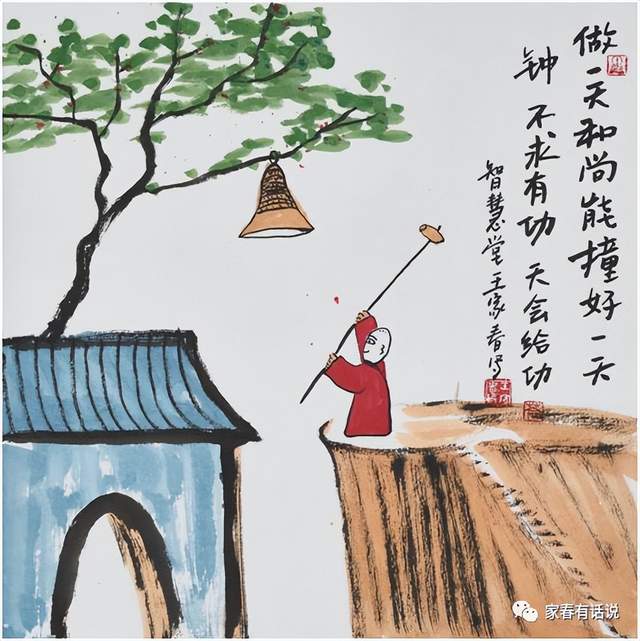 做一天和尚能撞好一天
钟 不求有功 天会给功
智慧堂王家春写
家春有话说